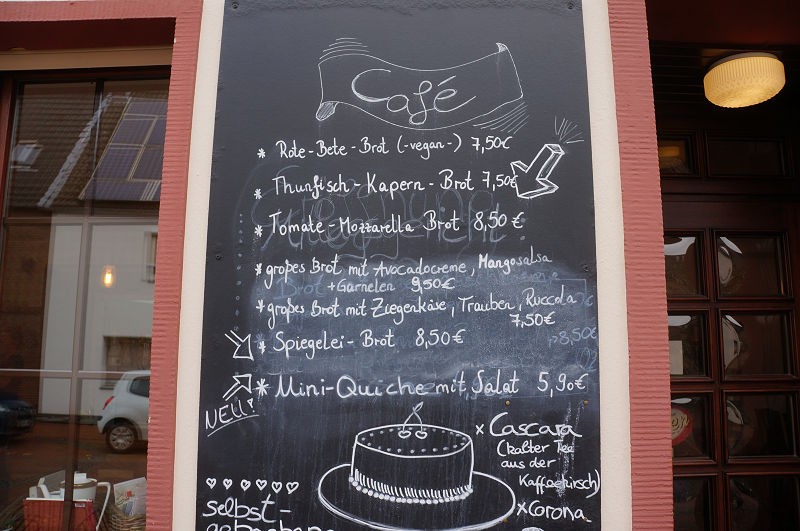 Café
* Rote-Bete-Brot (-vegan-) 7,50€
* Thunfisch-Kapern-Brot 7,50€
* Tomate-Mozzarella Brot 8,50€
* großes Brot mit Avocadocreme, Mangosalsa
+Garnelen 9,50€
* großes Brot mit Ziegenkäse, Trauben, Ruccola
7,50€
* Spiegelei-Brot 8,50€
* Mini-Quiche mit Salat 5,90€
NEU!
x Cascara
(kalter Tee
aus der
Kaffeekirsch)
x Corona
selbst-
gebackene